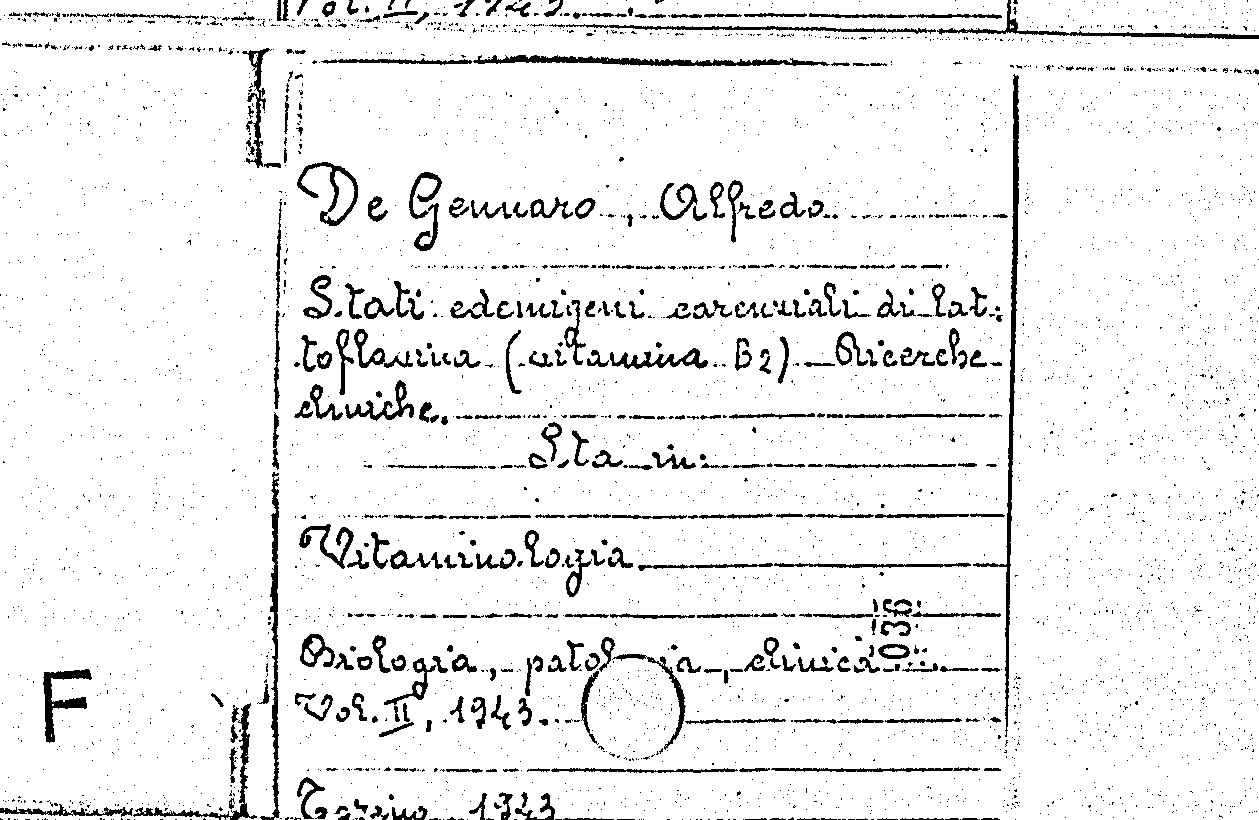 Vol. II, 1943.
De Gennaro, Alfredo
Stati edemigeni carenziali di lat-
toflavina (vitamina B2). Ricerche
cliniche.
Sta in:
Vitaminologia
036
Biologia, patologia, clinica
Vol. II, 1943.
F
Torino 1943